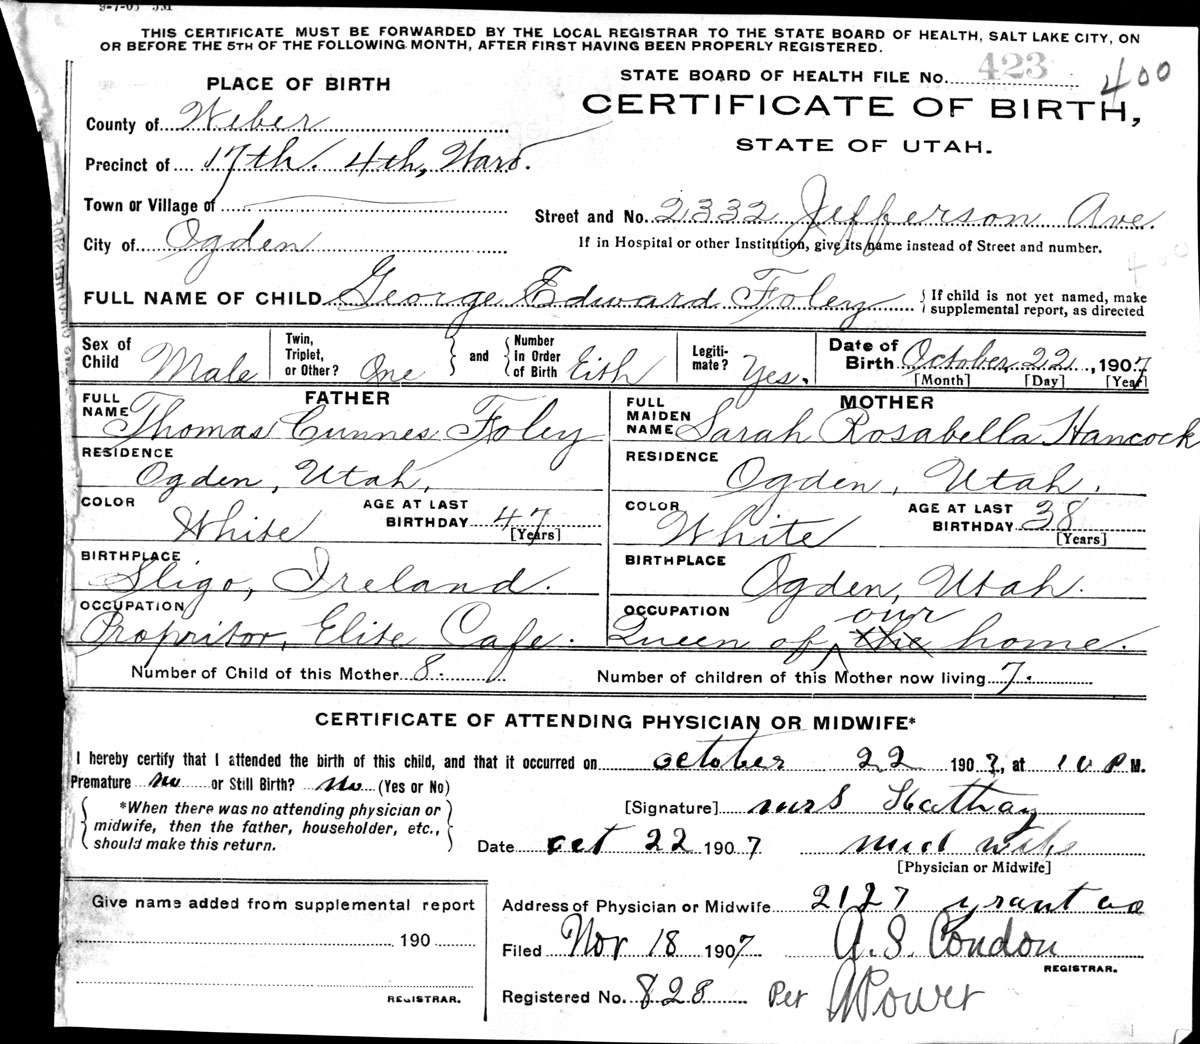 9-7-05 5M
THIS CERTIFICATE MUST BE FORWARDED BY THE LOCAL REGISTRAR TO THE STATE BOARD OF HEALTH, SALT LAKE CITY, ON
OR BEFORE THE 5TH OF THE FOLLOWING MONTH, AFTER FIRST HAVING BEEN PROPERLY REGISTERED.
STATE BOARD OF HEALTH FILE No. 423 400
PLACE OF BIRTH
CERTIFICATE OF BIRTH,
County of Weber
STATE OF UTAH.
Precinct of 17th. 4th, Ward.
Town or Village of
Street and No. 2332 Jefferson Ave.
City of Ogden
If in Hospital or other Institution, give its name instead of Street and number.
400
FULL NAME OF CHILD George Edward Foley { If child is not yet named, make
supplemental report, as directed
Sex of Child Male Twin, Triplet, or Other? One } and { Number in Order of Birth Eith Legiti-mate? Yes. Date of Birth October 22, 1907
[Month] [Day] [Year]
FATHER
FULL NAME Thomas Cunnes Foley
RESIDENCE
Ogden, Utah,
COLOR White AGE AT LAST BIRTHDAY 47
[Years]
BIRTHPLACE
Sligo, Ireland.
OCCUPATION
Propritor, Elite Cafe.
MOTHER
FULL MAIDEN NAME Sarah Rosabella Hancock
RESIDENCE
Ogden, Utah.
COLOR White AGE AT LAST BIRTHDAY 38
[Years]
BIRTHPLACE
Ogden, Utah.
OCCUPATION our
Queen of the home.
Number of Child of this Mother 8. Number of children of this Mother now living 7.
CERTIFICATE OF ATTENDING PHYSICIAN OR MIDWIFE*
I hereby certify that I attended the birth of this child, and that it occurred on october 22 1907, at 10 P M.
Premature no or Still Birth? No (Yes or No)
{ *When there was no attending physician or
midwife, then the father, householder, etc.,
should make this return. }
[Signature] mrs
Date oct 22 1907 mid wife
[Physician or Midwife]
Give name added from supplemental report
190
REGISTRAR.
Address of Physician or Midwife 2127 grant av
Filed Nov 18 1907 A. S. Condon
REGISTRAR.
Registered No. 828 Per Power